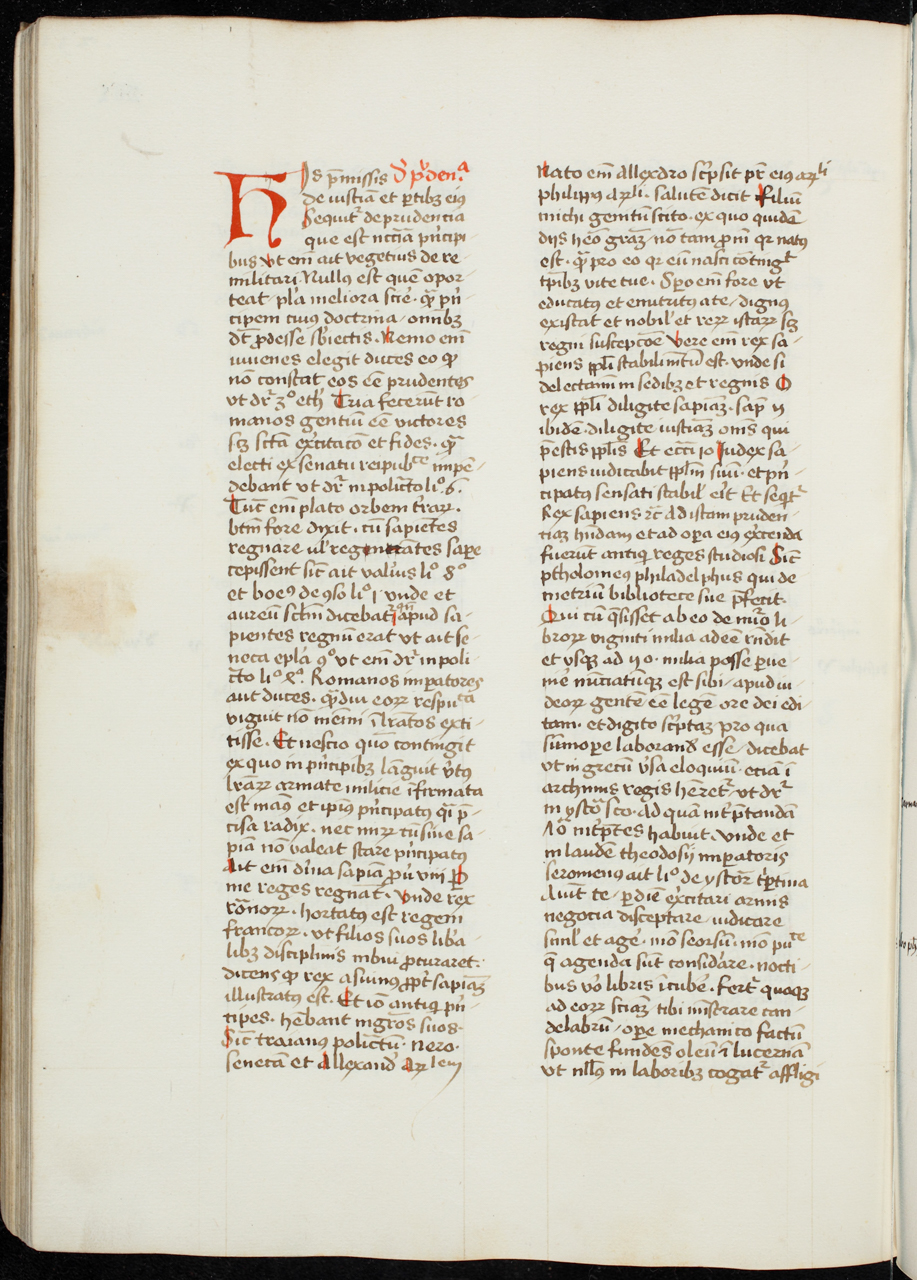 His p̄missis d̓ p̓den.ᵃ
de iusticiā et p̲tibꝫ eiꝰ
Sequit᷑ de prudencia
que est nc̄c̄iā pⁱncipi
bus vt em̄ ait vegetius de re
militari Nullus est quē opor
teat pl̓a meliora scīe . qͣꝫ pⁱn
cipem cuiꝰ doctrina omnibꝫ
dꝫ ꝓdesse sb̓iectis . Nemo em̄
iuuenes elegit duces eo ꝙ
nō constat eos eē prudentes
vt dr̄ 3° eth̓ Tria fecerūt ro
manos gentiū eē victores
scꝫ sc̄tā exc̓itacō et fides . qͣꝫ
electi ex senatu reipubᶜᵉ impē
debant vt dr̄ in polic̄to li° 6.
Tūc em̄ plato orbem tr̄aꝝ
btm̄ fore dixit . cū sapiētes
regnare ul̓ regnātes sape
cepissent sic̄ ait val̓ius li° 8°
et boeꝰ de ꝯso li° j vnde et
aureū sc̄lm̄ dicebat᷑ apud sa
pientes regnū erat vt ait se
neca epl̄a 9° vt em̄ dr̄ in poli
c̄to li° 4°. Romanos imp̲atores
aut duces . qͣꝫdiu eoꝝ respuᶜᵃ
viguit nō memī il̄lr̄atos exti
tisse . Et nescio quō contingit
ex quo in pⁱncipibꝫ lāguit v̓tꝰ
lr̄aꝝ armate milicie īfirmata
est manꝰ et ipiꝰ pⁱncipatꝰ qͣi p̄
cisa radix . nec mirꝝ cū sine sa
piā nō valeat stare pⁱncipatꝰ
Ait em̄ diuīa sapiā ꝓū viij P̲
me reges regnāt . vnde rex
rōnoꝝ . hortatꝰ est regem
francoꝝ . vt filios suos lib̓a
libꝫ disciplinis imbui ꝓcuraret .
dicens ꝙ rex asinus ꝓpt̓ sapiāꝫ
illustratꝰ est . Et iō antiqⁱ pⁱn
cipes . hēbant mgr̄os suos .
Sic̄ traianꝰ polic̄tū . nero .
senecā et Allexand̓ Aꝝlem
Nato em̄ Allexdro scⁱpsit pr̄ eiꝰ aꝝˡⁱ
philippꝰ aꝝˡⁱ . salutē dicit filiū
michi genitū scito . ex quo quidē
diis hēo graꝫ nō tam ꝓm̄ qr natꝰ
est . qͣꝫ pro eo qr eū nasci cōtingᵗ
tp̄ibꝫ vite tue . Sp̲o em̄ fore vt
educatꝰ et enutritꝰ a te dignꝰ
existat et nobil̓ et reꝝ istaꝝ scꝫ
regni suscepcōe Vere em̄ rex sa
piens pp̄l̄i stabilimtū est . vnde si
delectamī in sedibꝫ et regnis O
rex pp̄l̄i diligite sapiāꝫ . sap̄ vj
ibidē . diligite iusticiāꝫ om̄s qui
p̄estis pp̄l̄is Et ecc̄i 10 Iudex sa
piens iudicabit pp̄l̄m suū . et pⁱn
cipatꝰ sensati stabil̓ er̄it Et seqⁱt᷑
Rex sapiens ꝛc̄ Ad istam pruden
ciaꝫ hn̄dam et ad op̲a eiꝰ exc̓enda
fuerūt antiqⁱ reges studiosi Sic̄
ptholomeꝰ philadelphus qui de
metriū bibliotece sue p̄fecit .
Qui cū q̄sisset ab eo de nūo li
broꝝ viginti milia adeē rn̄dit
et vsqꝫ ad 50 . milia posse ꝑue
nīe nūciatūqꝫ est sibi . apud iu
deoꝝ gentē eē legē ore dei edi
tam . et digito scⁱptaꝫ pro qua
sūmope laborand̓ esse dicebat
vt in grecū v̓sa eloquiū . eciā ī
archiuis regis hēret᷑ vt dr̄
in ystor̄ sco . ad quā int̓p̄tandā
70 int̓p̄tes habuit . Vnde et
in laudē theodosij imp̲atoris
seromenꝰ ait li° de ystor̄ tp̲tina
Aiūt te . p̲ diē exc̓itari armis
negocia disceptare iudicare
simł et agē . mō seorsū . mō puᶜᵉ
q̄ agenda sūt considāre . nocti
bus v̓o libris īcubē . fert᷑ quoqꝫ
ad eoꝝ sciāꝫ tibi mīstrare can
delabrū . ope mechanico factū
sponte fundēs oleū ī lucernā
vt nll̓ꝰ in laboribꝫ cogat᷑ affligi